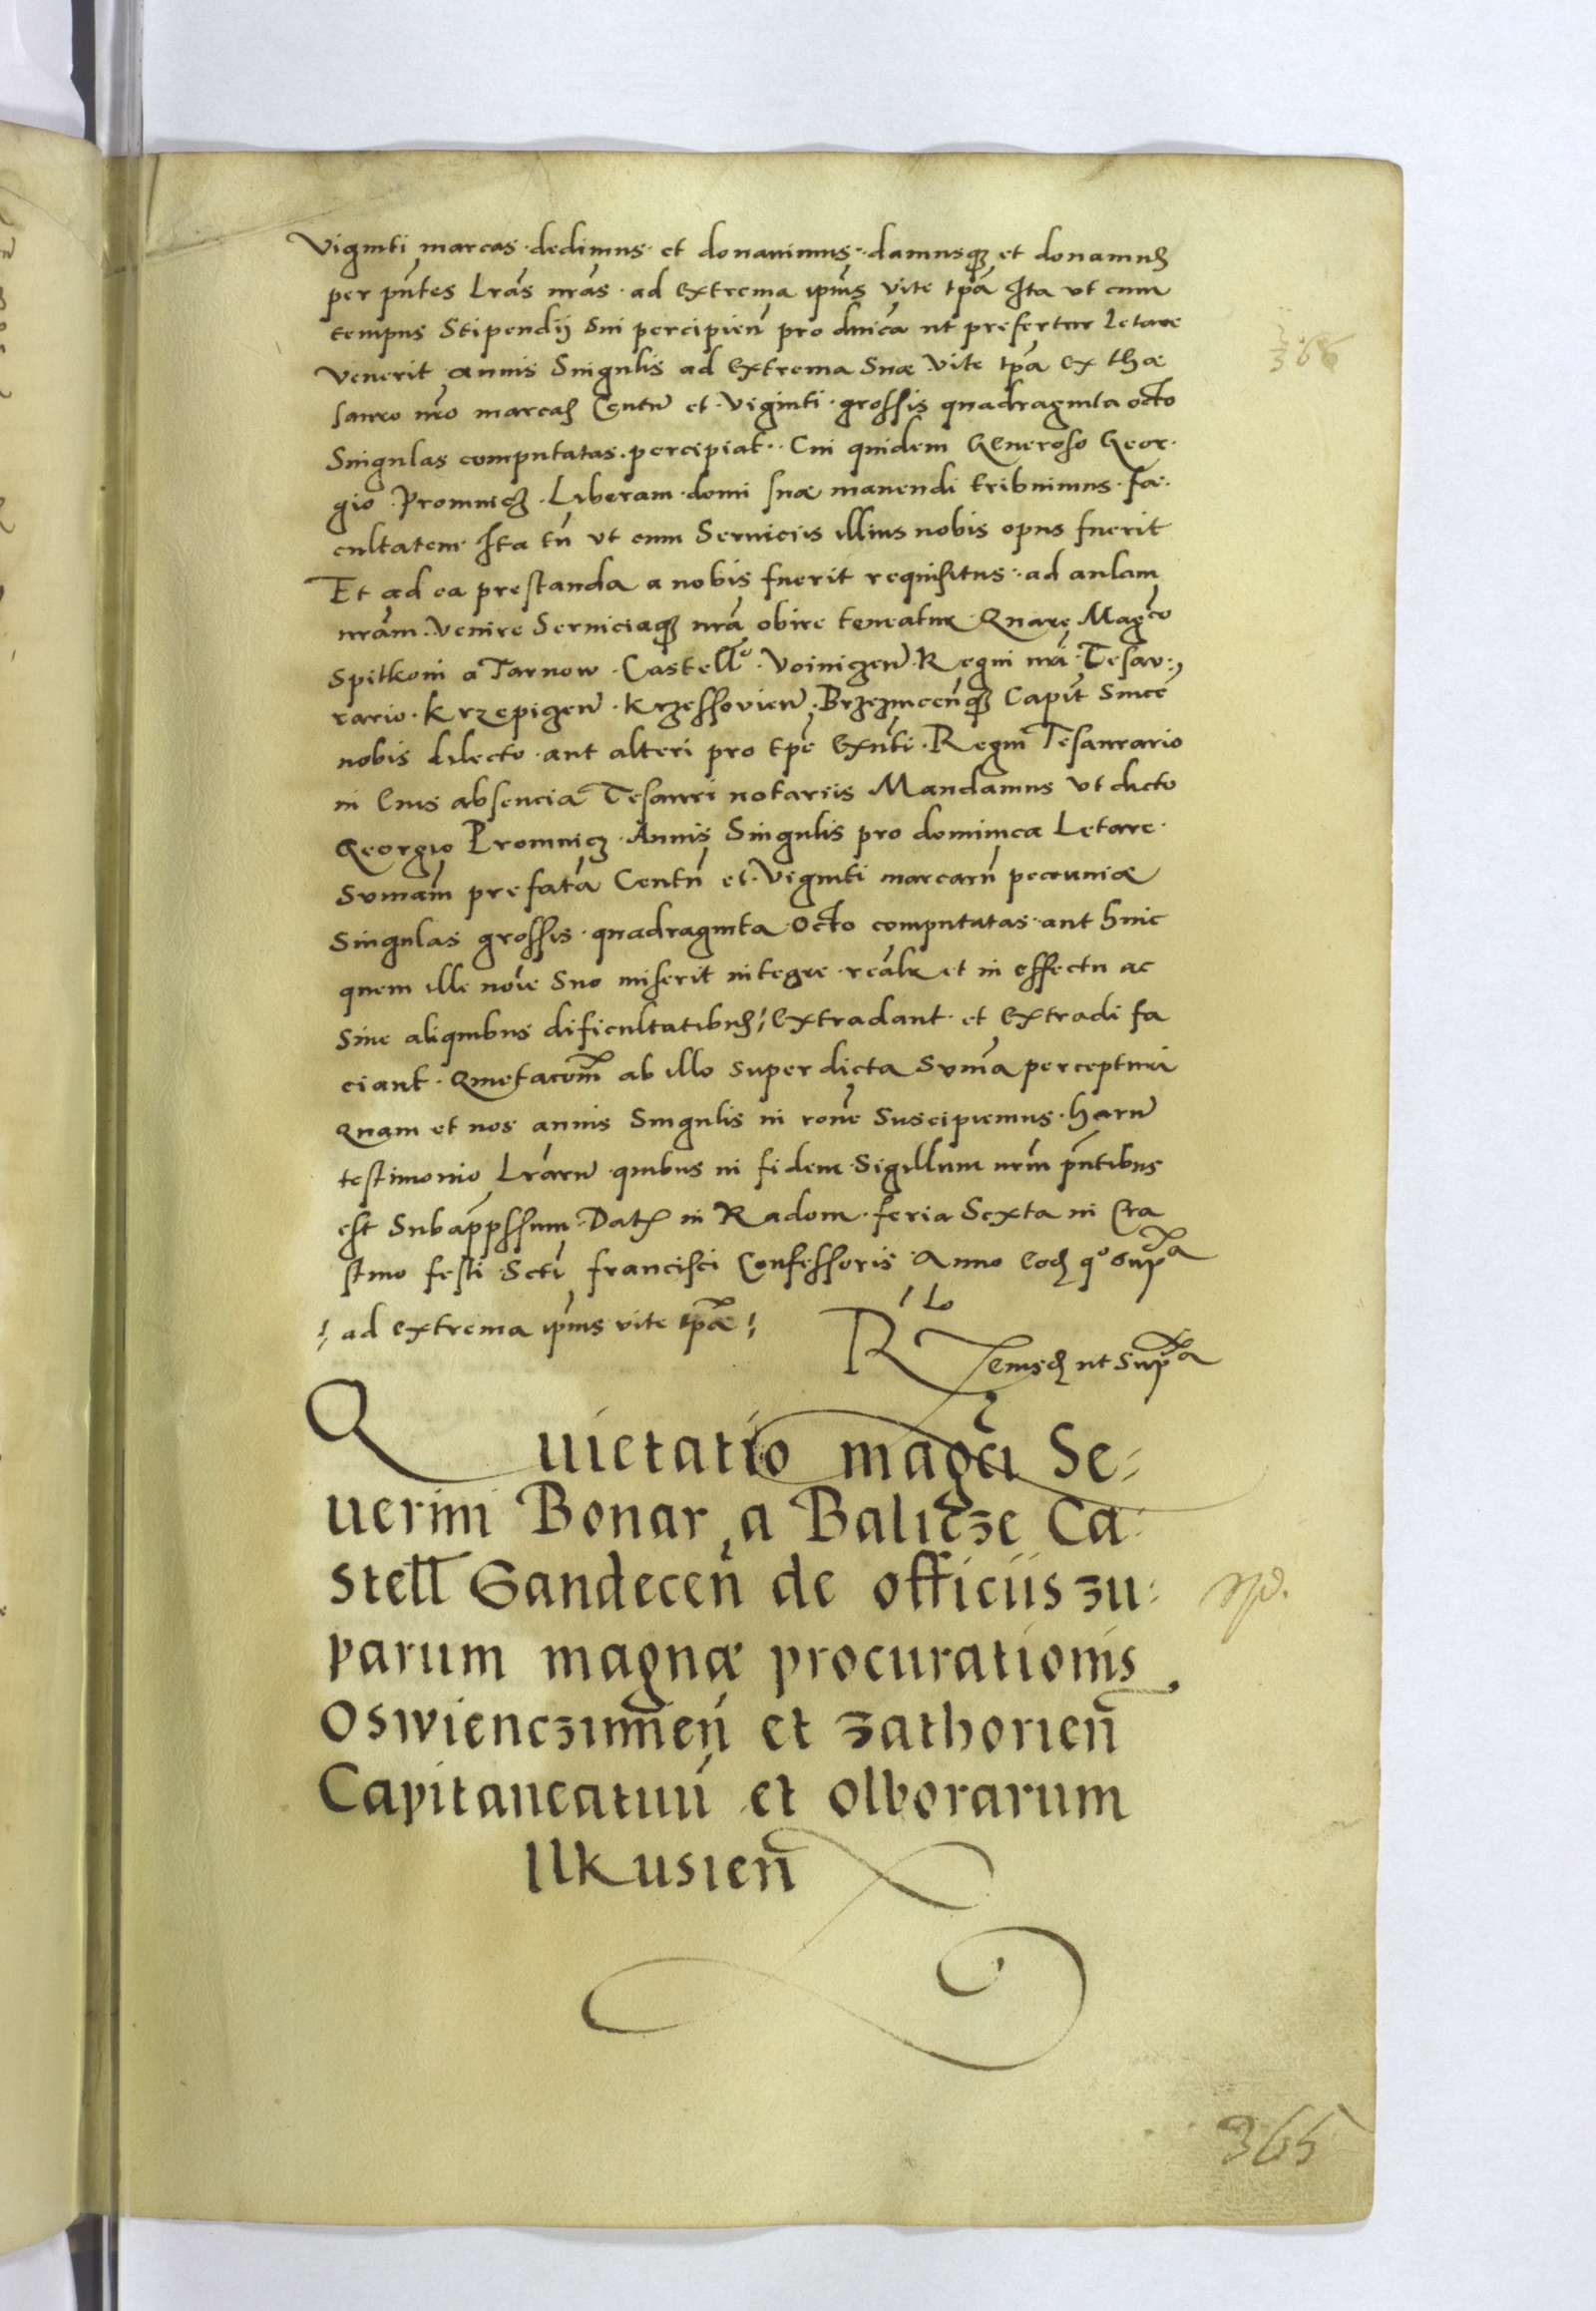 Viginti marcas dedimus et donavimus damusq3 et donamus
per pñtes lrãs nrãs ad extrema ipsius vite tpã Ita ut cum
tempus Stipendij Sui percipien̄ pro dnica ut prefertur Letare
Venerit annis Singulis ad extrema Suæ Vite tpã ex thæ
sauro nrõ marcas Centũ et Viginti grossis quadraginta octo
Singulas computatas percipiat Cui quidem Generoso Geor
gio Promnicz Liberam domi suæ manendi tribuimus fa
cultatem Ita tñ ut cum Serviciis illius nobis opus fuerit
Et ad ea prestanda a nobis fuerit requisitus ad aulam
nrãm Venire Serviciaq3 nrã obire teneatur Quare Magco
Spitkoni a Tarnow Castello Voiniczen̄ Regni nri Tesau
rario Krzepiczen̄ Krzessovien̄ Brzeznicen̄q3 Capit Since
nobis dilecto aut alteri pro tpe Exnti Regni Tesaurario
in Eius absencia Tesauri notariis Mandamus ut dicto
Georgio Promnicz Annis Singulis pro dominica Letare
Sumam prefatã Centũ et Viginti marcarũ pecuniæ
Singulas grossis quadraginta octo computatas aut huic
quem ille noie Suo miserit integre realr et in effectu ac
Sine aliquibus dificultatibus extradant et extradi fa
ciant Quietacom ab illo super dicta Suma percepturi
Quam et nos annis Singulis in rone Suscipiemus harũ
testimonio Lrarũ quibus in fidem Sigillum nrm pñtibus
est Subappssum Dat in Radom feria Sexta in Cra
stino festi Scti francisci Confessoris Anno Eod qo supra
ad extrema ipsius vite tpã
R eiusd ut supra
Quietatio magci Se-
uerini Bonar a Balicze Ca
stell Sandecen̄ de officiis zu
parum magnæ procurationis
Oswienczimen̄ et zathorien̄
Capitaneatuũ et olborarum
Ilkusien̄
366
365